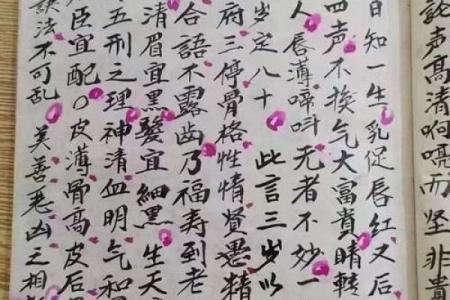 声高清啊而坚非貴
日知一生乳促唇红又后
四声不挨气大富貴睛转
人唇薄啼呌无者不妙一
岁定八十 此言三岁以
府三停骨格性情贤愚精
合語不露齿乃福寿到老
清眉宜黑髮宜細黑 生天
五刑之理神清血明气和
臣宜配〇皮薄骨高皮后
法不可乱 美善恶凶之相